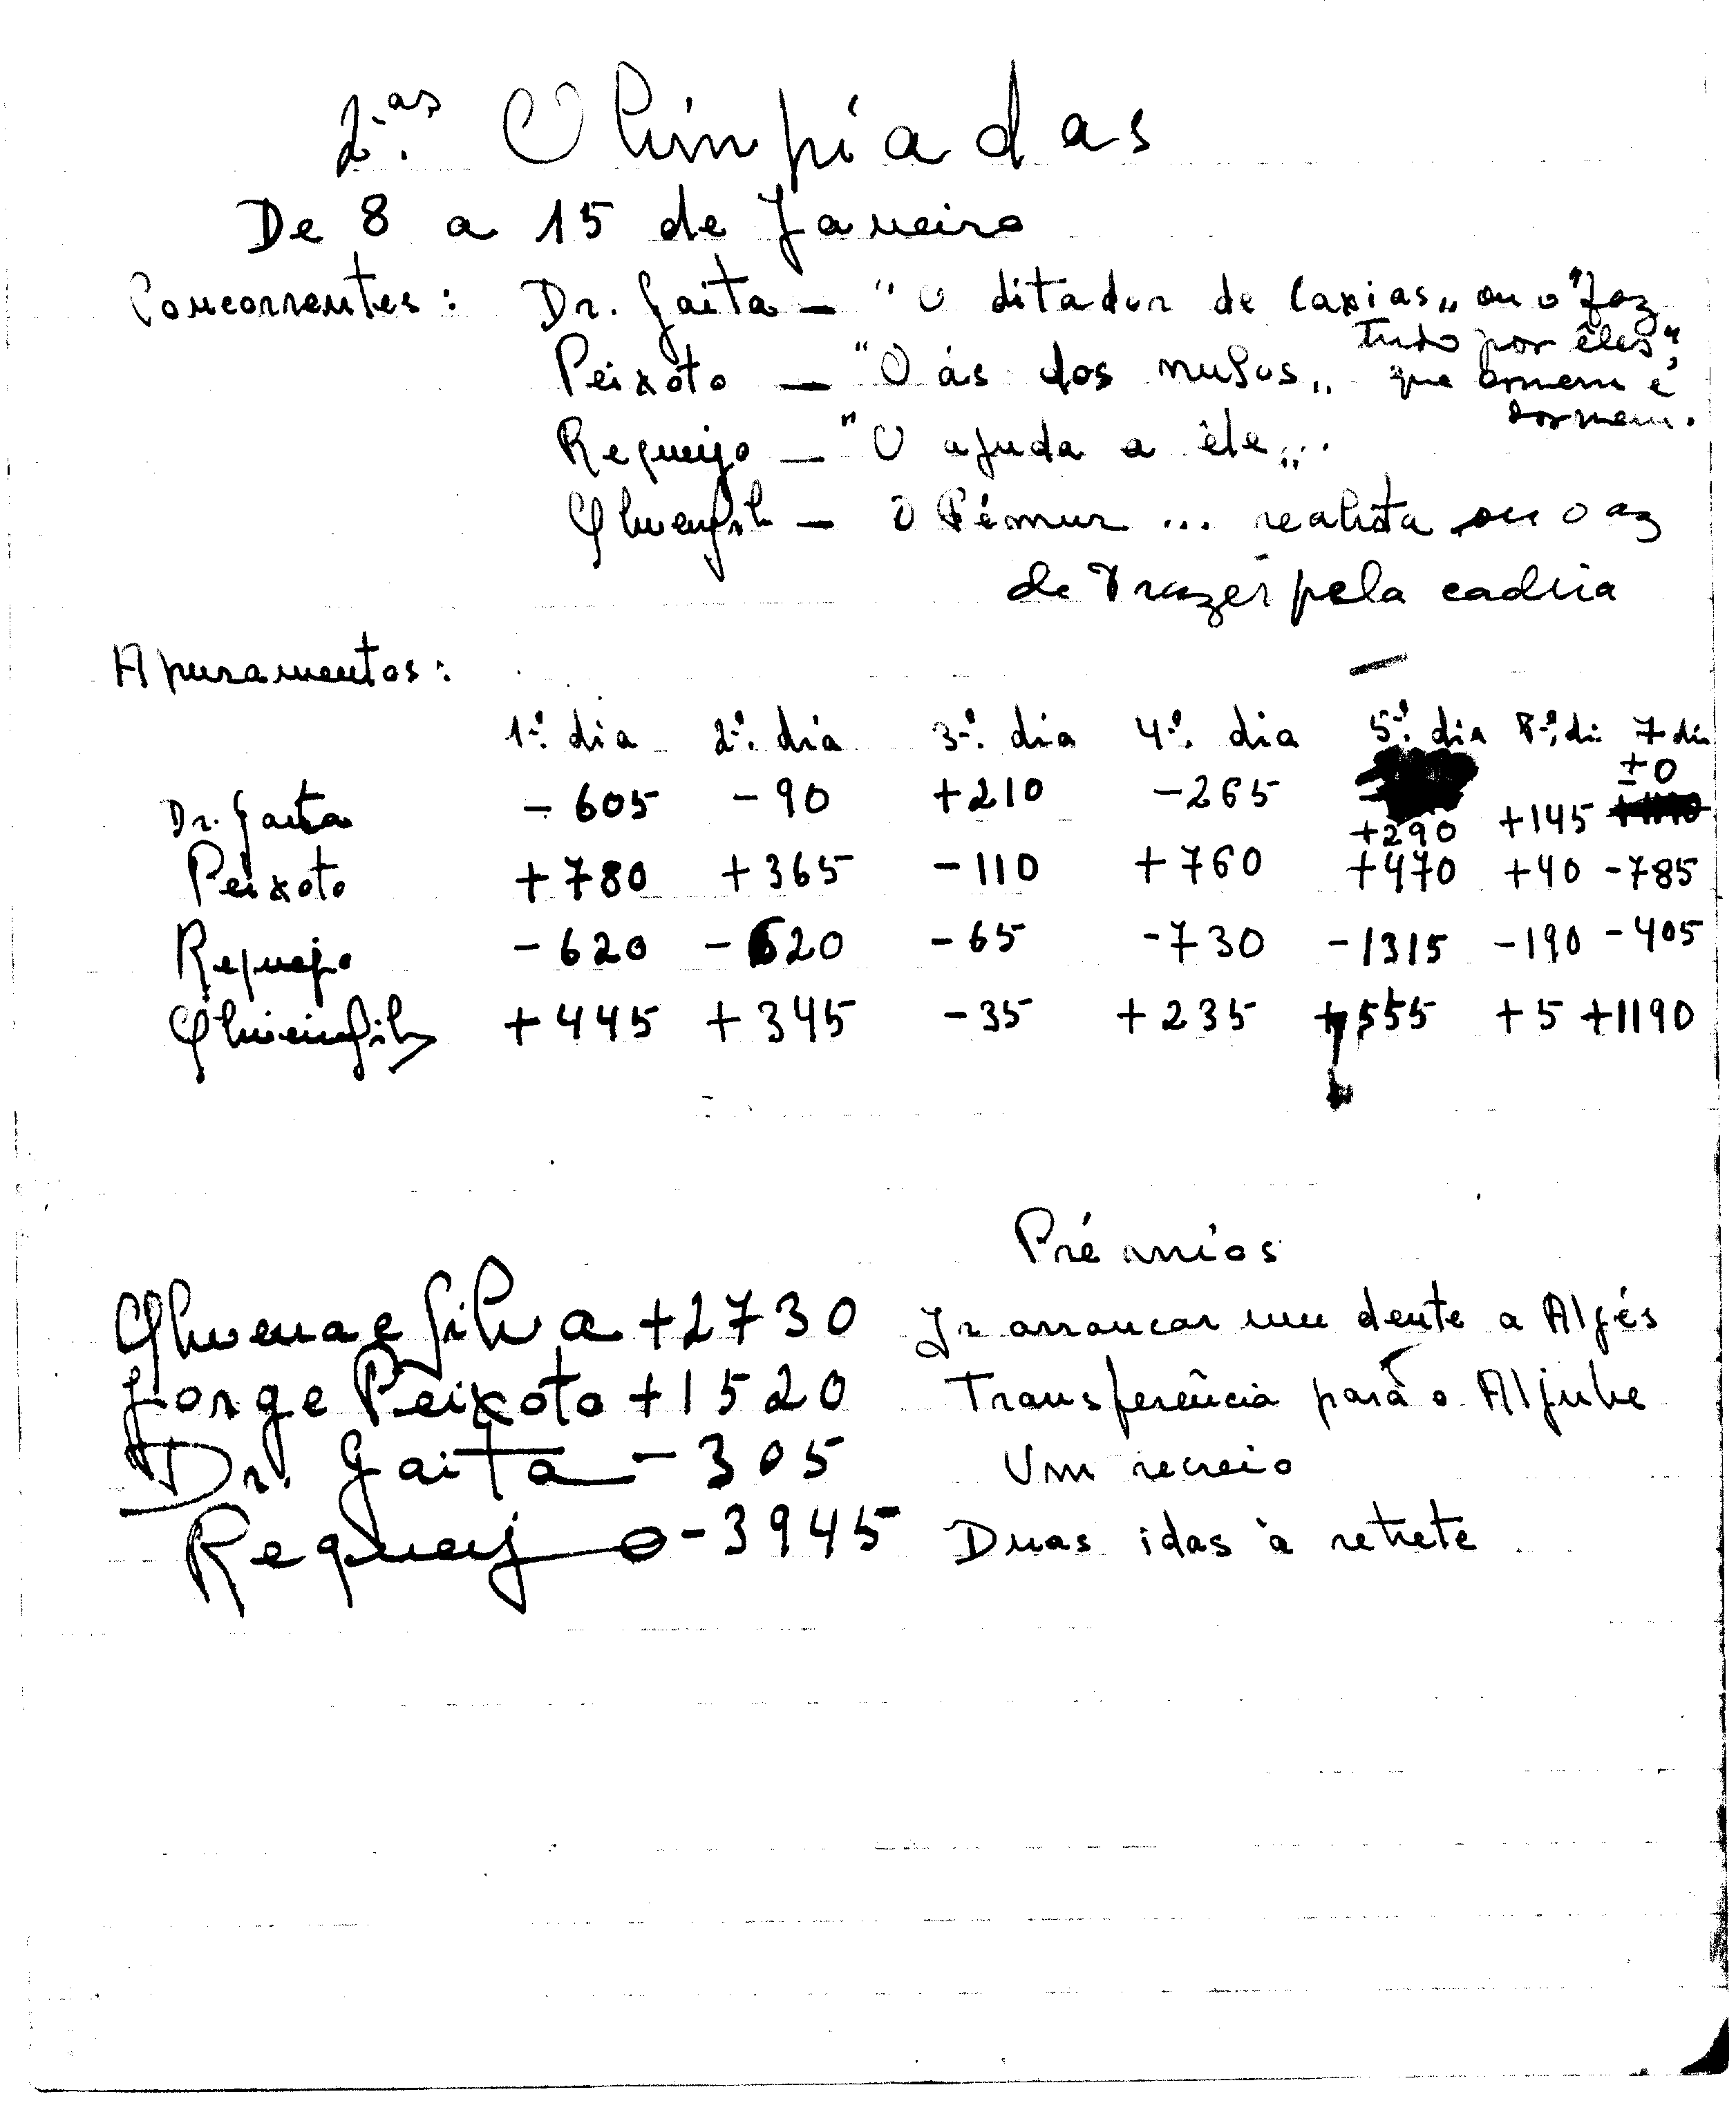 2.as Olimpíadas
De 8 a 15 de Janeiro
Concorrentes: Dr. Gaita — "O ditador de Caxias„ ou o "faz
tudo por êles",
Peixoto — "O ás dos nulos„ que comem e
dormem.
Requeijo — "O ajuda a êle„..
O Fémur ... realista ou o az
de trazer pela cadeia
Apuramentos:
1.º dia 2.º dia 3.º dia 4.º dia 5.º dia 6.º di 7 dia
±0
Dr. Gaita -605 -90 +210 -265 +290 +145
Peixoto +780 +365 -110 +760 +470 +40 -785
Requeijo -620 -620 -65 -730 -1315 -190 -405
+445 +345 -35 +235 +555 +5 +1190
Prémios
Oliveira e Silva +2730 Ir arrancar um dente a Algés
Jorge Peixoto +1520 Transferência para o Aljube
Dr. Gaita -305 Um recreio
Requeijo -3945 Duas idas à retrete